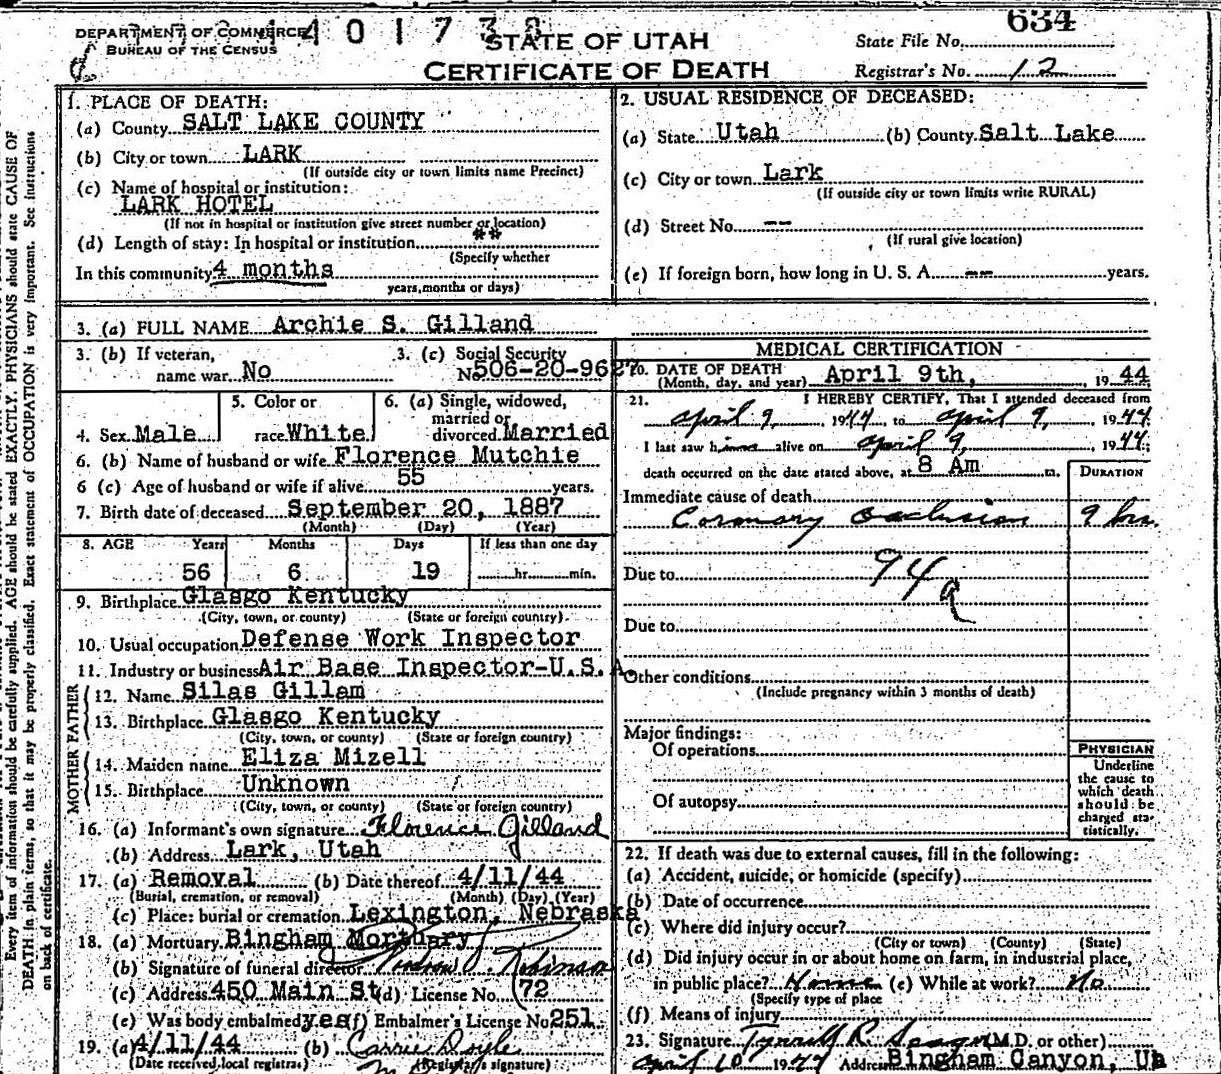 DEPARTMENT OF COMMERCE
BUREAU OF THE CENSUS
4401738
STATE OF UTAH
CERTIFICATE OF DEATH
634
State File No.
Registrar's No. 12
Every item of information should be carefully supplied. AGE should be stated EXACTLY. PHYSICIANS should state CAUSE OF
DEATH in plain terms, so that it may be properly classified. Exact statement of OCCUPATION is very important. See instructions
on back of certificate.
1. PLACE OF DEATH:
(a) County SALT LAKE COUNTY
(b) City or town LARK
(If outside city or town limits name Precinct)
(c) Name of hospital or institution:
LARK HOTEL
(If not in hospital or institution give street number or location)
(d) Length of stay: In hospital or institution **
(Specify whether
In this community 4 months
years, months or days)
2. USUAL RESIDENCE OF DECEASED:
(a) State Utah (b) County Salt Lake
(c) City or town Lark
(If outside city or town limits write RURAL)
(d) Street No. --
(If rural give location)
(e) If foreign born, how long in U. S. A. -- years.
3. (a) FULL NAME Archie S. Gilland
3. (b) If veteran,
name war No
3. (c) Social Security
No 506-20-9627
4. Sex Male
5. Color or
race White
6. (a) Single, widowed,
married or
divorced Married
6. (b) Name of husband or wife Florence Mutchie
6 (c) Age of husband or wife if alive 55 years.
7. Birth date of deceased September 20, 1887
(Month) (Day) (Year)
8. AGE Years Months Days If less than one day
56 6 19 hr. min.
9. Birthplace Glasgo Kentucky
(City, town, or county) (State or foreign country)
10. Usual occupation Defense Work Inspector
11. Industry or business Air Base Inspector-U.S.A.
FATHER
12. Name Silas Gillam
13. Birthplace Glasgo Kentucky
(City, town, or county) (State or foreign country)
MOTHER
14. Maiden name Eliza Mizell
15. Birthplace Unknown
(City, town, or county) (State or foreign country)
16. (a) Informant's own signature Florence Gilland
(b) Address Lark, Utah
17. (a) Removal (b) Date thereof 4/11/44
(Burial, cremation, or removal) (Month) (Day) (Year)
(c) Place: burial or cremation Lexington, Nebraska
18. (a) Mortuary Bingham Mortuary
(b) Signature of funeral director Robinson
(c) Address 450 Main St (d) License No. 72
(e) Was body embalmed yes (f) Embalmer's License No 251
19. (a) 4/11/44 (b) Carrie Doyle
(Date received local registrar) (Registrar's signature)
MEDICAL CERTIFICATION
20. DATE OF DEATH
(Month, day, and year) April 9th, 1944
21. I HEREBY CERTIFY, That I attended deceased from
April 9, 1944, to April 9, 1944;
I last saw him alive on April 9, 1944;
death occurred on the date stated above, at 8 Am m.
DURATION
Immediate cause of death
Coronary occlusion 9 hrs.
Due to 94a
Due to
Other conditions
(Include pregnancy within 3 months of death)
Major findings:
Of operations
Of autopsy
PHYSICIAN
Underline
the cause to
which death
should be
charged sta-
tistically.
22. If death was due to external causes, fill in the following:
(a) Accident, suicide, or homicide (specify)
(b) Date of occurrence
(c) Where did injury occur?
(City or town) (County) (State)
(d) Did injury occur in or about home on farm, in industrial place,
in public place? Home (e) While at work? No
(Specify type of place
(f) Means of injury
23. Signature R. (M.D. or other)
April 10 1944 Address Bingham Canyon, U